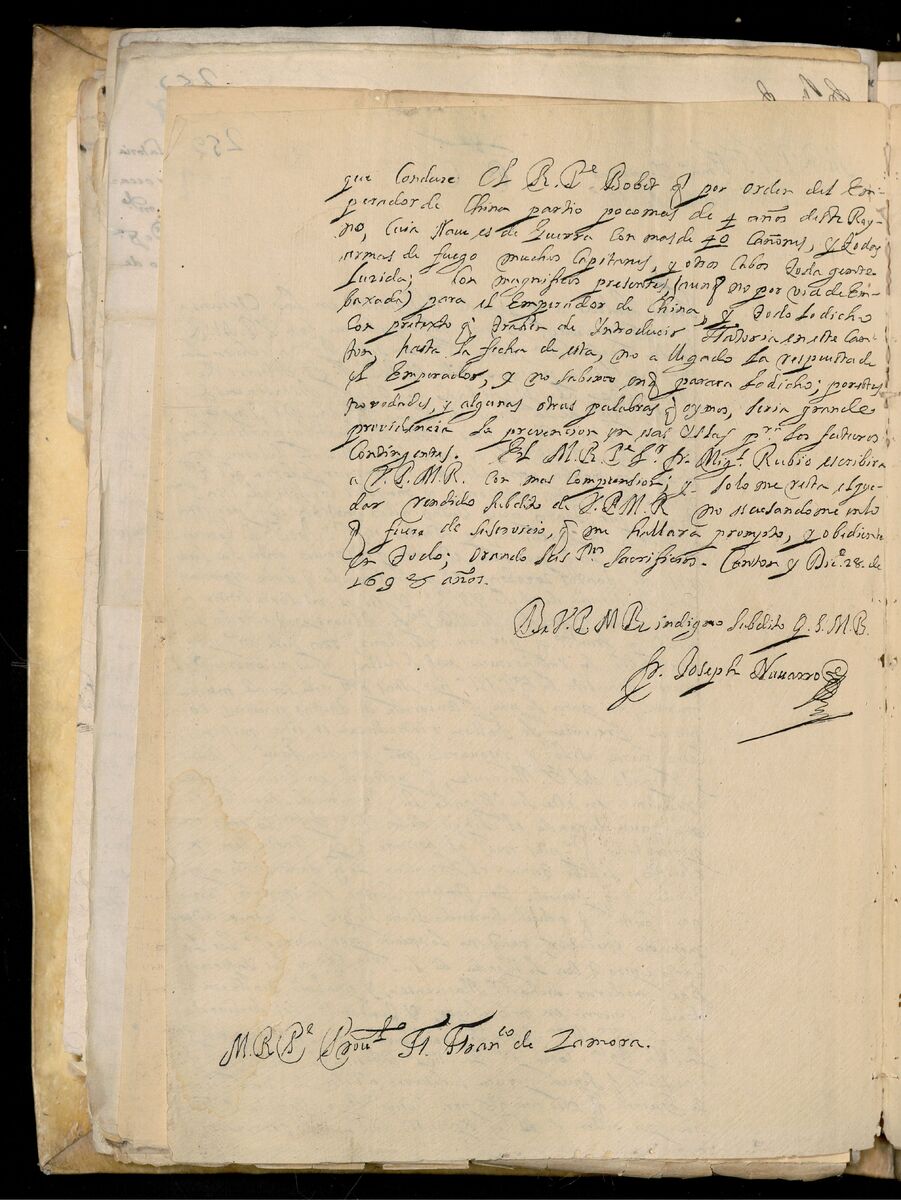 que conduxe el R. P.e Bobet q̃ por orden del Em-
perador de China partio poco mas de 4 años deste Rey-
no, cuia Naue es de Guerra con mas de 40 Cañones, y todas
armas de fuego muchos Capitanes, y otros Cabos toda gente
luzida; con magnificos presentes (aunq̃ no por via de Em-
baxada) para el Emperador de China, y todo lo dicho
con pretexto q̃ tratan de introducir Flatoria en este Can-
ton, hasta la fecha de esta, no a llegado la respuesta de
el Emperador, y no sabemos en q̃ parara lo dicho; por estas
novedades, y algunas otras palabras q̃ oymos, seria grande
providencia la prevencion en esas Yslas p.ra los futuros
Contingentes. El M.R.P.e fr. Mig.l Rubio escribira
a V.P.M.R. con mas comprension; y solo me resta el que-
dar rendido subdito de V.P.M.R. no escusandome en lo
q̃ fuere de su servicio, q̃ me hallara prompto, y obediente
en todo; orando sus s.tos sacrificios. Canton y Diz.e 28. de
1698 años.
De V.P.M.R. indigno subdito Q.S.M.B.
fr. Joseph Nauarro
M.R.P.e Prou.l Fr. Fran.co de Zamora.
252